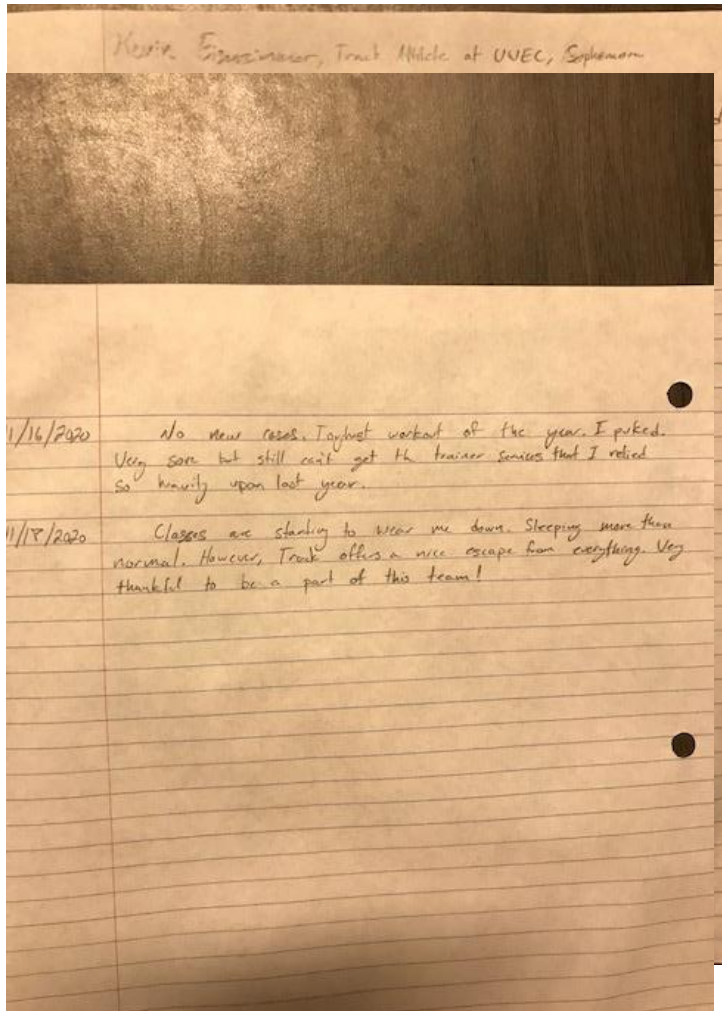 Kevin , Track Athlete at UWEC, Sophomore
1/16/2020 No new cases. Toughest workout of the year. I puked.
Very sore but still can't get the trainer services that I relied
so heavily upon last year.
11/18/2020 Classes are starting to wear me down. Sleeping more than
normal. However, Track offers a nice escape from everything. Very
thankful to be a part of this team!